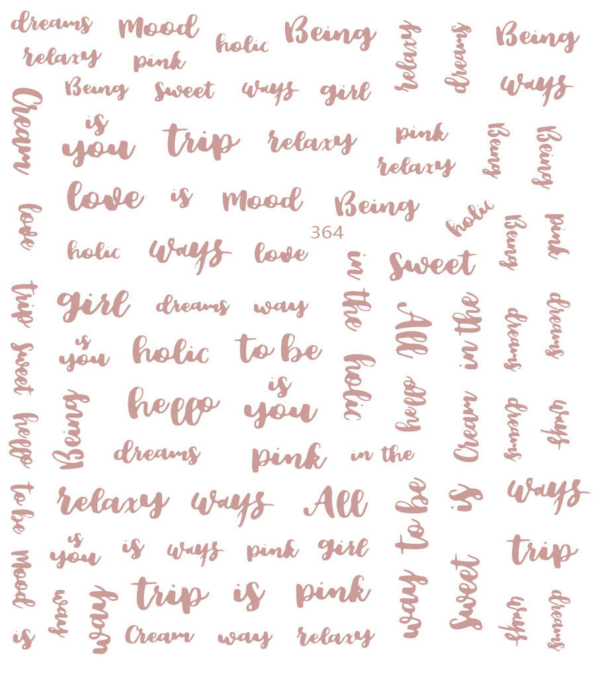 dreams Mood holic Being relaxy dreams Being
relaxy pink
Being Sweet ways girl ways
Cream
is
you trip relaxy pink Being Being
relaxy
love is Mood Being holic
love Being pink
364
holic ways love in the Sweet
trip girl dreams way All in the dreams dreams
Sweet is
you holic to be holic
hello Being hello is
you hello Cream dreams ways
dreams pink in the
to be relaxy ways All way to be is ways
Mood is
you is ways pink girl Sweet trip
way trip is pink ways dreams
is Cream way relaxy